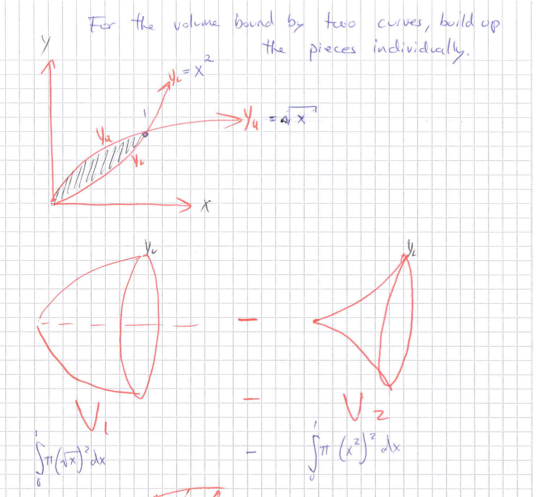 For the volume bound by two curves, build up
the pieces individually.
y
y_L = x²
1
y_u = √x
y_u
y_L
x
y_u
y_L
−
V₁ − V₂
∫₀¹ π(√x)² dx − ∫₀¹ π(x²)² dx